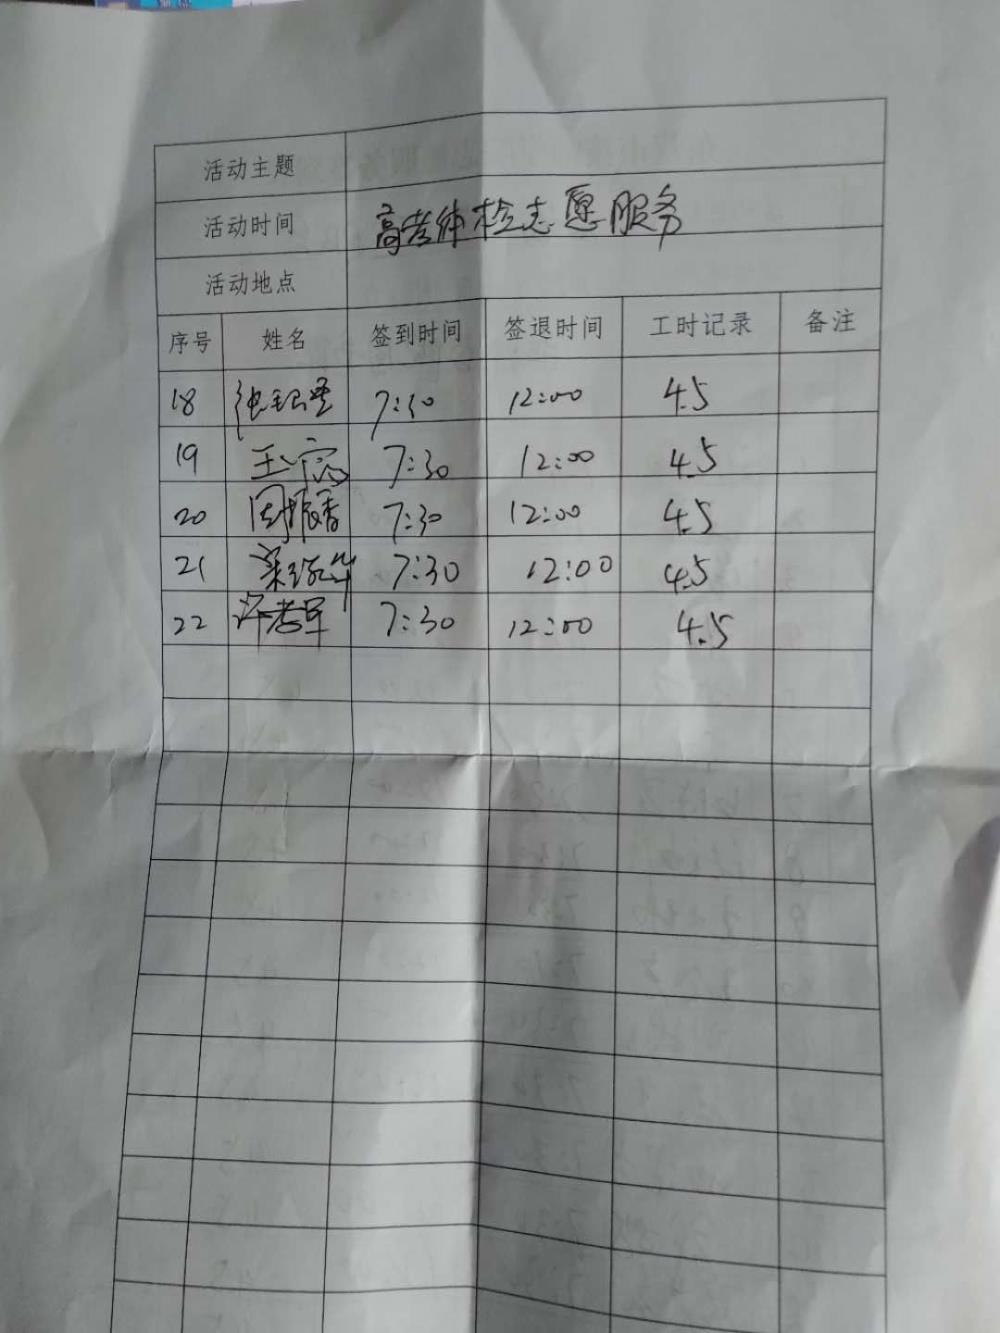 活动主题
活动时间 高考体检志愿服务
活动地点
序号 姓名 签到时间 签退时间 工时记录 备注
18 7:30 12:00 4.5
19 7:30 12:00 4.5
20 周振香 7:30 12:00 4.5
21 7:30 12:00 4.5
22 7:30 12:00 4.5